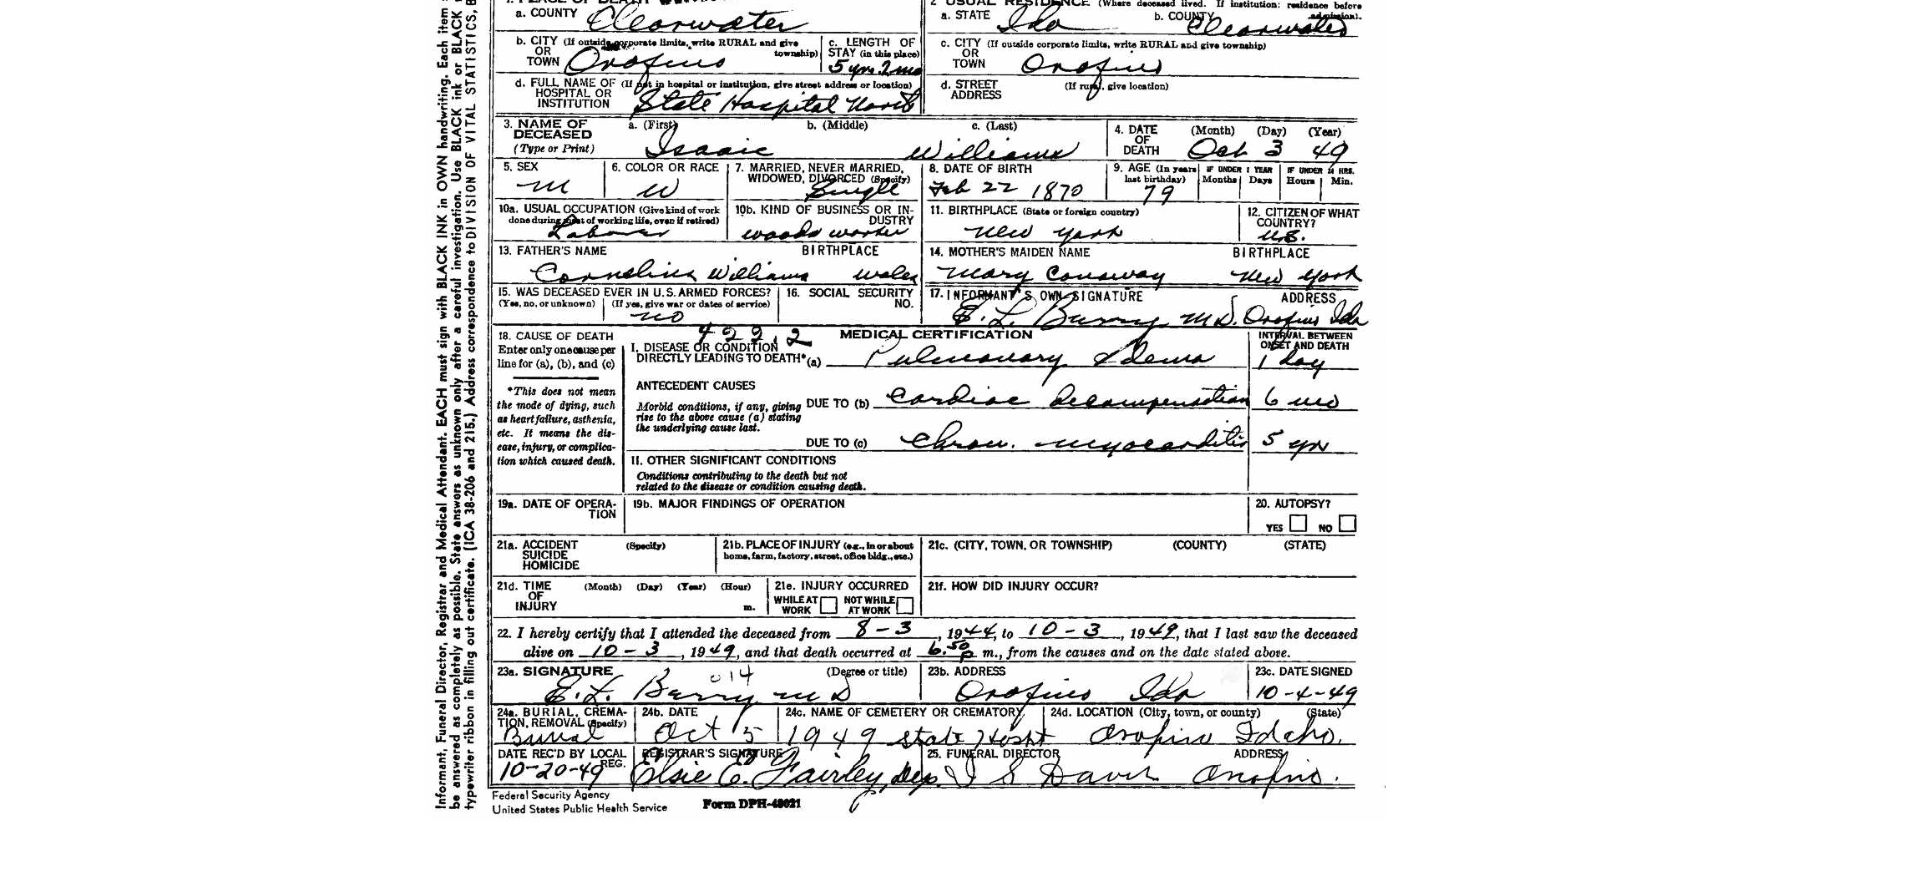 Informant, Funeral Director, Registrar and Medical Attendant. EACH must sign with BLACK INK in OWN handwriting. Each item
be answered as completely as possible. State answers as unknown only after a careful investigation. Use BLACK ink or BLACK
typewriter ribbon in filling out certificate. (ICA 38-206 and 215.) Address correspondence to DIVISION OF VITAL STATISTICS, B
2 USUAL RESIDENCE (Where deceased lived. If institution: residence before admission).
a. COUNTY Clearwater a. STATE Ida b. COUNTY Clearwater
b. CITY (If outside corporate limits, write RURAL and give township) OR TOWN Orofino c. LENGTH OF STAY (in this place) 5 yrs 2 mo c. CITY (If outside corporate limits, write RURAL and give township) OR TOWN Orofino
d. FULL NAME OF (If not in hospital or institution, give street address or location) HOSPITAL OR INSTITUTION State Hospital North d. STREET ADDRESS (If rural, give location)
3. NAME OF DECEASED (Type or Print) a. (First) Isaac b. (Middle) c. (Last) Williams 4. DATE OF DEATH (Month) (Day) (Year) Oct 3 49
5. SEX M 6. COLOR OR RACE W 7. MARRIED, NEVER MARRIED, WIDOWED, DIVORCED (Specify) Single 8. DATE OF BIRTH Feb 22 1870 9. AGE (In years last birthday) 79 IF UNDER 1 YEAR Months Days IF UNDER 24 HRS. Hours Min.
10a. USUAL OCCUPATION (Give kind of work done during most of working life, even if retired) Laborer 10b. KIND OF BUSINESS OR INDUSTRY woods worker 11. BIRTHPLACE (State or foreign country) New York 12. CITIZEN OF WHAT COUNTRY? U.S.
13. FATHER'S NAME Cornelius Williams BIRTHPLACE Wales 14. MOTHER'S MAIDEN NAME Mary Conaway BIRTHPLACE New York
15. WAS DECEASED EVER IN U.S. ARMED FORCES? (Yes, no, or unknown) (If yes, give war or dates of service) no 16. SOCIAL SECURITY NO. 17. INFORMANT'S OWN SIGNATURE E. L. Burry M.D. ADDRESS Orofino Ida
18. CAUSE OF DEATH 422.2 MEDICAL CERTIFICATION INTERVAL BETWEEN ONSET AND DEATH
Enter only one cause per line for (a), (b), and (c) I. DISEASE OR CONDITION DIRECTLY LEADING TO DEATH* (a) Pulmonary Edema 1 day
*This does not mean the mode of dying, such as heart failure, asthenia, etc. It means the disease, injury, or complication which caused death.
ANTECEDENT CAUSES
Morbid conditions, if any, giving rise to the above cause (a) stating the underlying cause last. DUE TO (b) Cardiac decompensation 6 mo
DUE TO (c) Chron. myocarditis 5 yr
II. OTHER SIGNIFICANT CONDITIONS
Conditions contributing to the death but not related to the disease or condition causing death.
19a. DATE OF OPERATION 19b. MAJOR FINDINGS OF OPERATION 20. AUTOPSY? YES NO
21a. ACCIDENT SUICIDE HOMICIDE (Specify) 21b. PLACE OF INJURY (e.g., in or about home, farm, factory, street, office bldg., etc.) 21c. (CITY, TOWN, OR TOWNSHIP) (COUNTY) (STATE)
21d. TIME OF INJURY (Month) (Day) (Year) (Hour) m. 21e. INJURY OCCURRED WHILE AT WORK NOT WHILE AT WORK 21f. HOW DID INJURY OCCUR?
22. I hereby certify that I attended the deceased from 8-3, 1944, to 10-3, 1949, that I last saw the deceased
alive on 10-3, 1949, and that death occurred at 6:50 p m., from the causes and on the date stated above.
23a. SIGNATURE E. L. Burry M D 014 (Degree or title) 23b. ADDRESS Orofino Ida 23c. DATE SIGNED 10-4-49
24a. BURIAL, CREMATION, REMOVAL (Specify) Burial 24b. DATE Oct 5 1949 24c. NAME OF CEMETERY OR CREMATORY State Hospt 24d. LOCATION (City, town, or county) (State) Orofino Idaho.
DATE REC'D BY LOCAL REG. 10-20-49 REGISTRAR'S SIGNATURE Elsie E. Fairley, Dep. 25. FUNERAL DIRECTOR Davis ADDRESS Orofino.
Federal Security Agency
United States Public Health Service Form DPH-48021